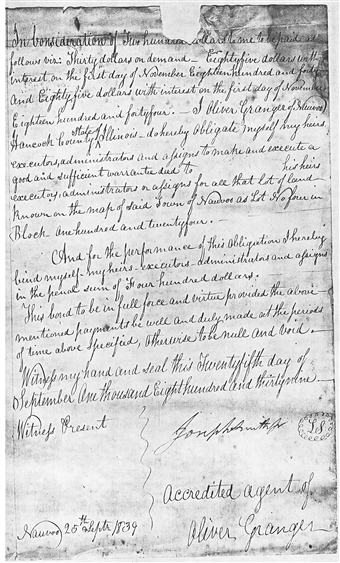 In Consideration of Two hundred dollars to me to be paid as
follows viz: Thirty dollars on demand – Eighty five dollars with
interest on the first day of November Eighteen hundred and forty
And Eighty five dollars with interest on the first day of November
Eighteen hundred and forty four. – I Oliver Granger of Nauvoo
Hancock County State of Illinois – do hereby obligate myself my heirs
executors, administrators and assigns to make and execute a
good and sufficient warrantee died to his heirs
executors, administrators or assigns for all that lot of land –
Known on the map of said Town of Nauvoo as Lot No four in
Block – one hundred and twenty four.
And for the performance of this Obligation I hereby
bind myself – my heirs – executors – administrators and assigns
in the penal sum of Four hundred dollars.
This bond to be in full force and virtue provided the above
mentioned payments be well and duly made at the periods
of time above specified, Otherwise to be null and void. –
Witness my hand and seal this Twenty fifth day of
September One thousand Eight hundred and thirty nine –
Witness Present
Joseph Smith Jr
L S
Accredited agent of
Oliver Granger
Nauvoo 25th Septr 1839